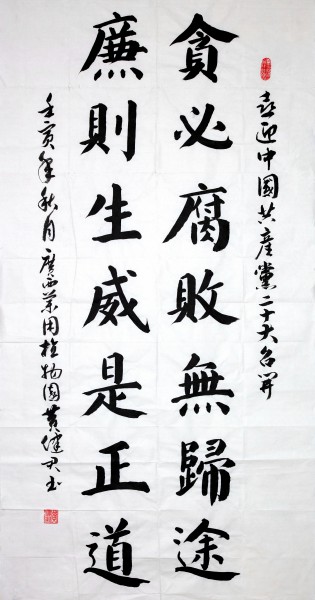 喜迎中國共產黨二十大召開
貪必腐敗無歸途
廉則生威是正道
壬寅年秋月廣西藥用植物園黃健君书